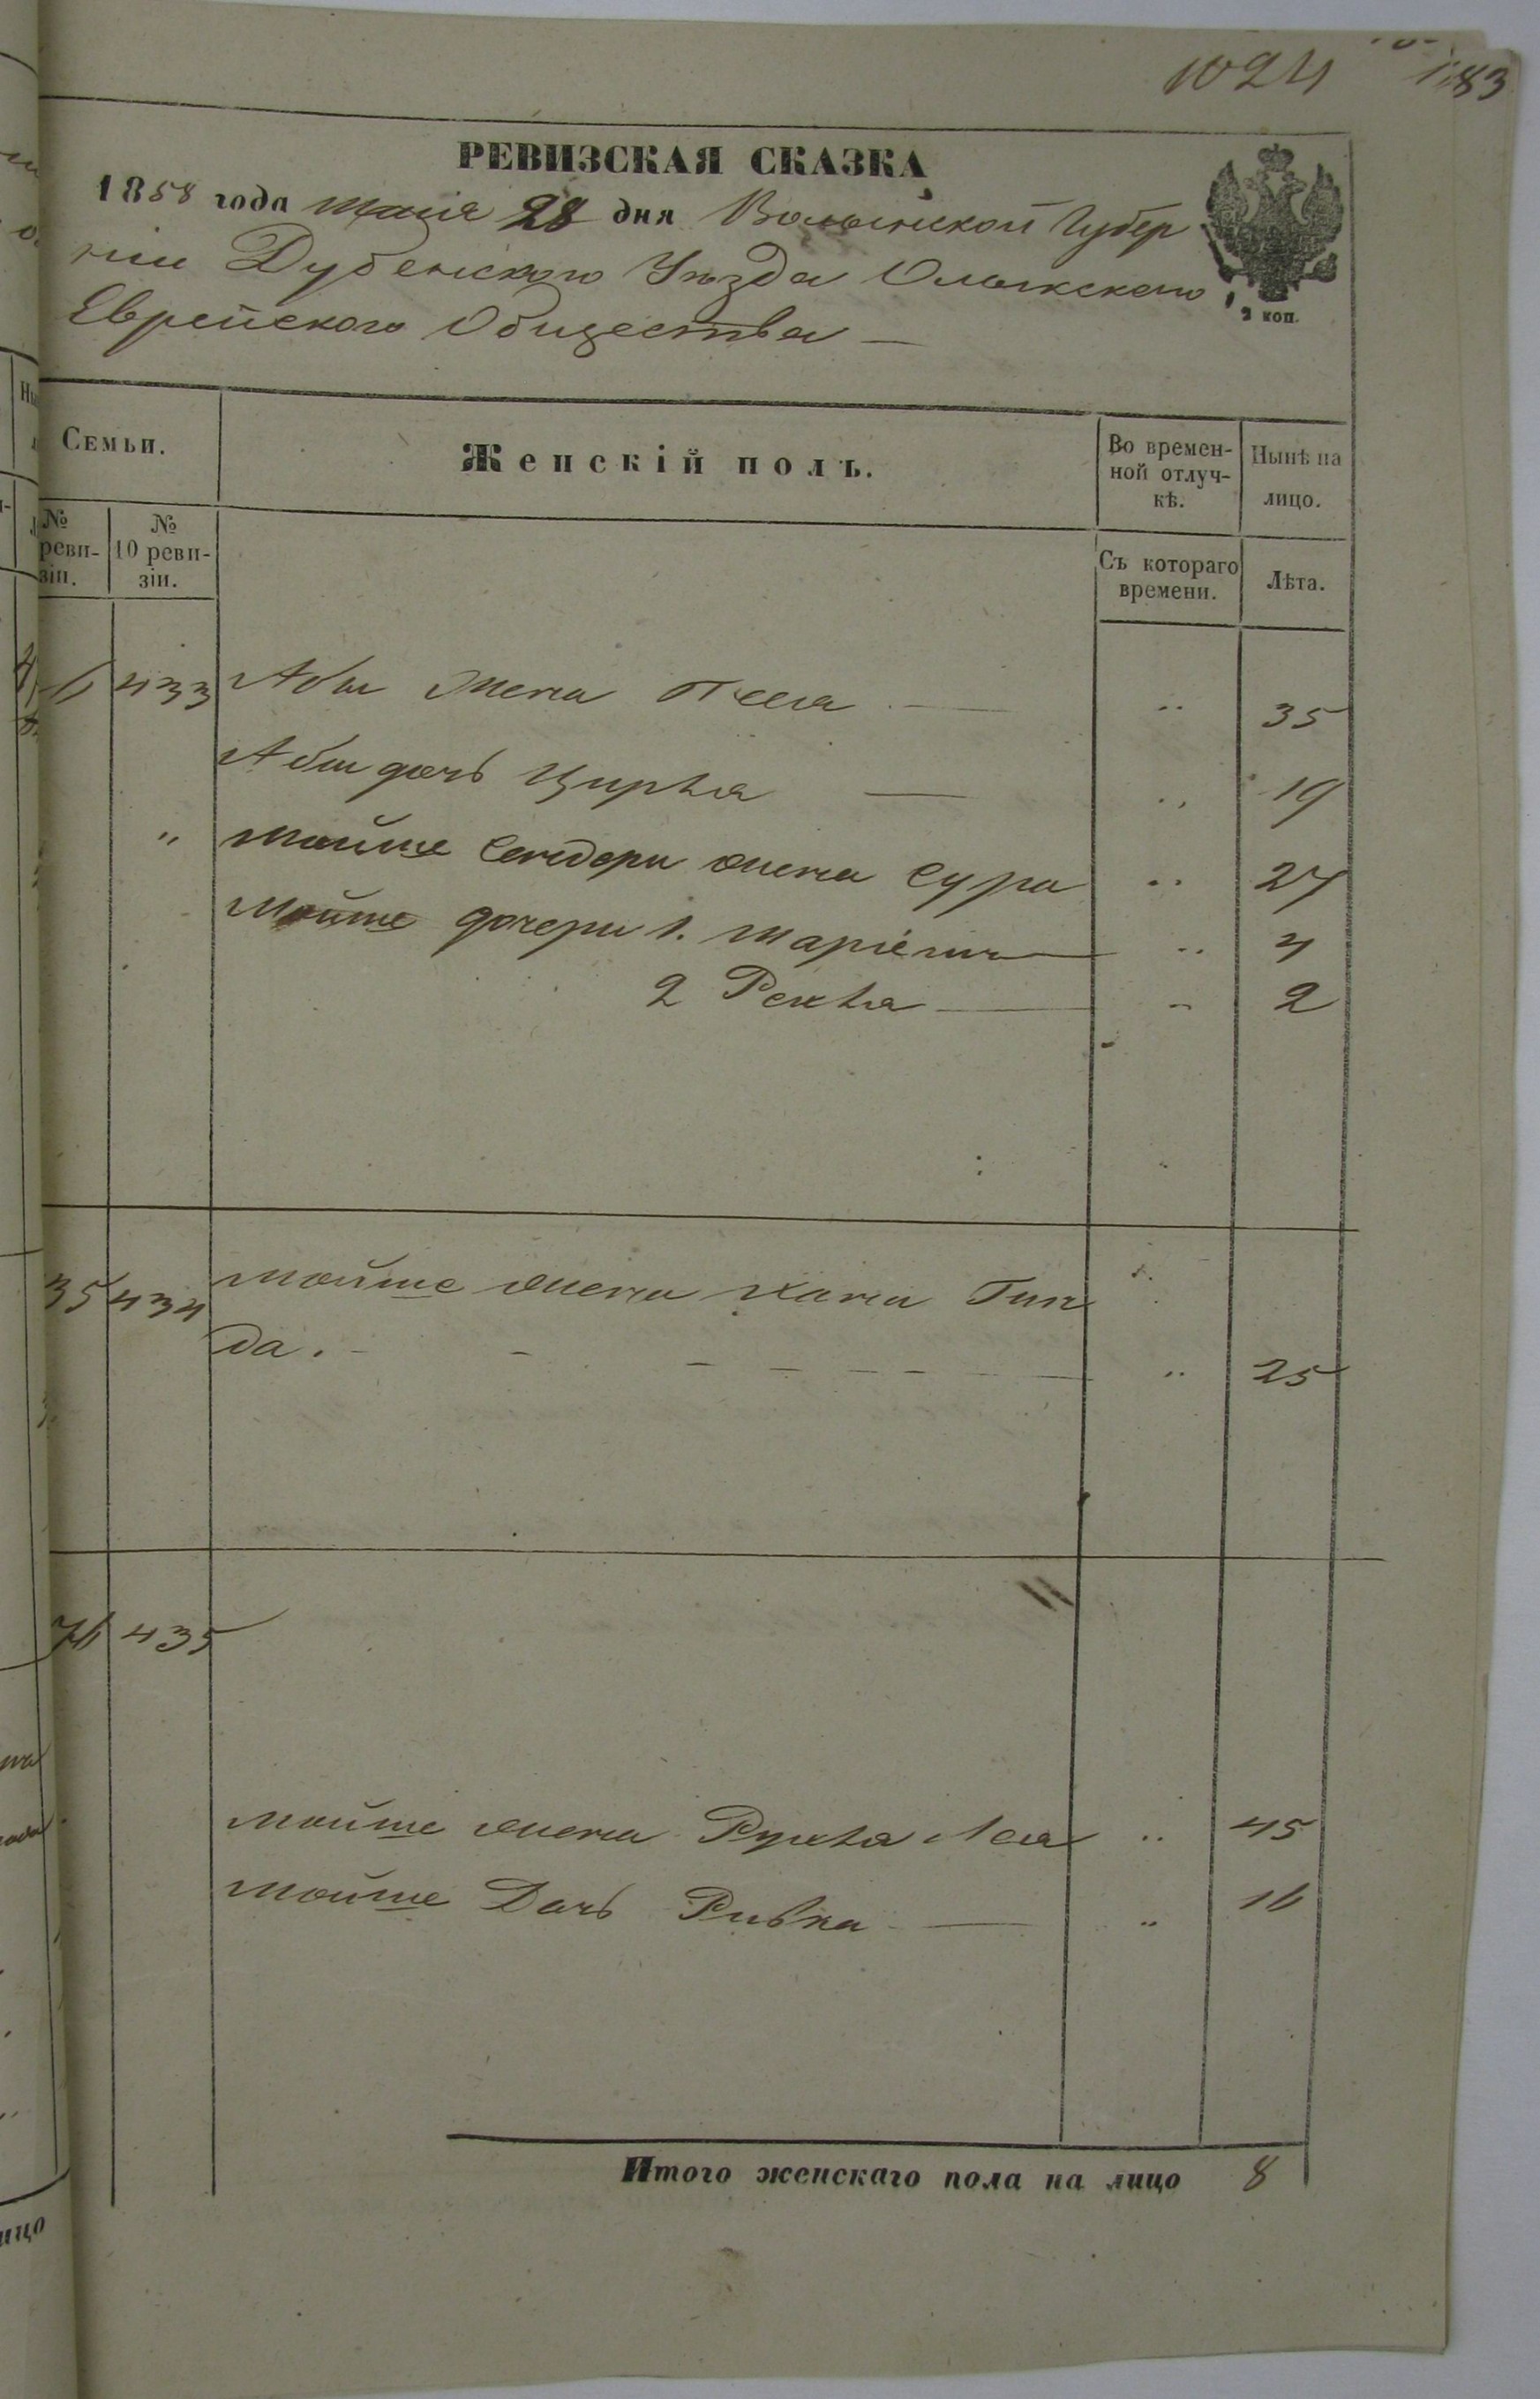 1024 1183
РЕВИЗСКАЯ СКАЗКА
1858 года маія 28 дня Волынской Губер
ніи Дубенского Уѣзда Олыкского
Еврейского Общества —
2 коп.
Семьи.
Женскій полъ.
Во времен-
ной отлуч-
кѣ.
Нынѣ на
лицо.
№
реви-
зіи.
№
10 реви-
зіи.
Съ котораго
времени.
Лѣта.
433 Абы Жена Песя — „ 35
Абы дочь Цирля — „ 19
„ Мойше Сендери жена Сура „ 27
Мойше дочери 1. Маріемъ — „ 4
2 Рехля — „ 2
35 434 Мойше жена Хана Гин
да. - „ 25
435
Мойше жена Рухля Лея „ 45
Мойше Дочь Ривка — „ 16
Итого женскаго пола на лицо 8